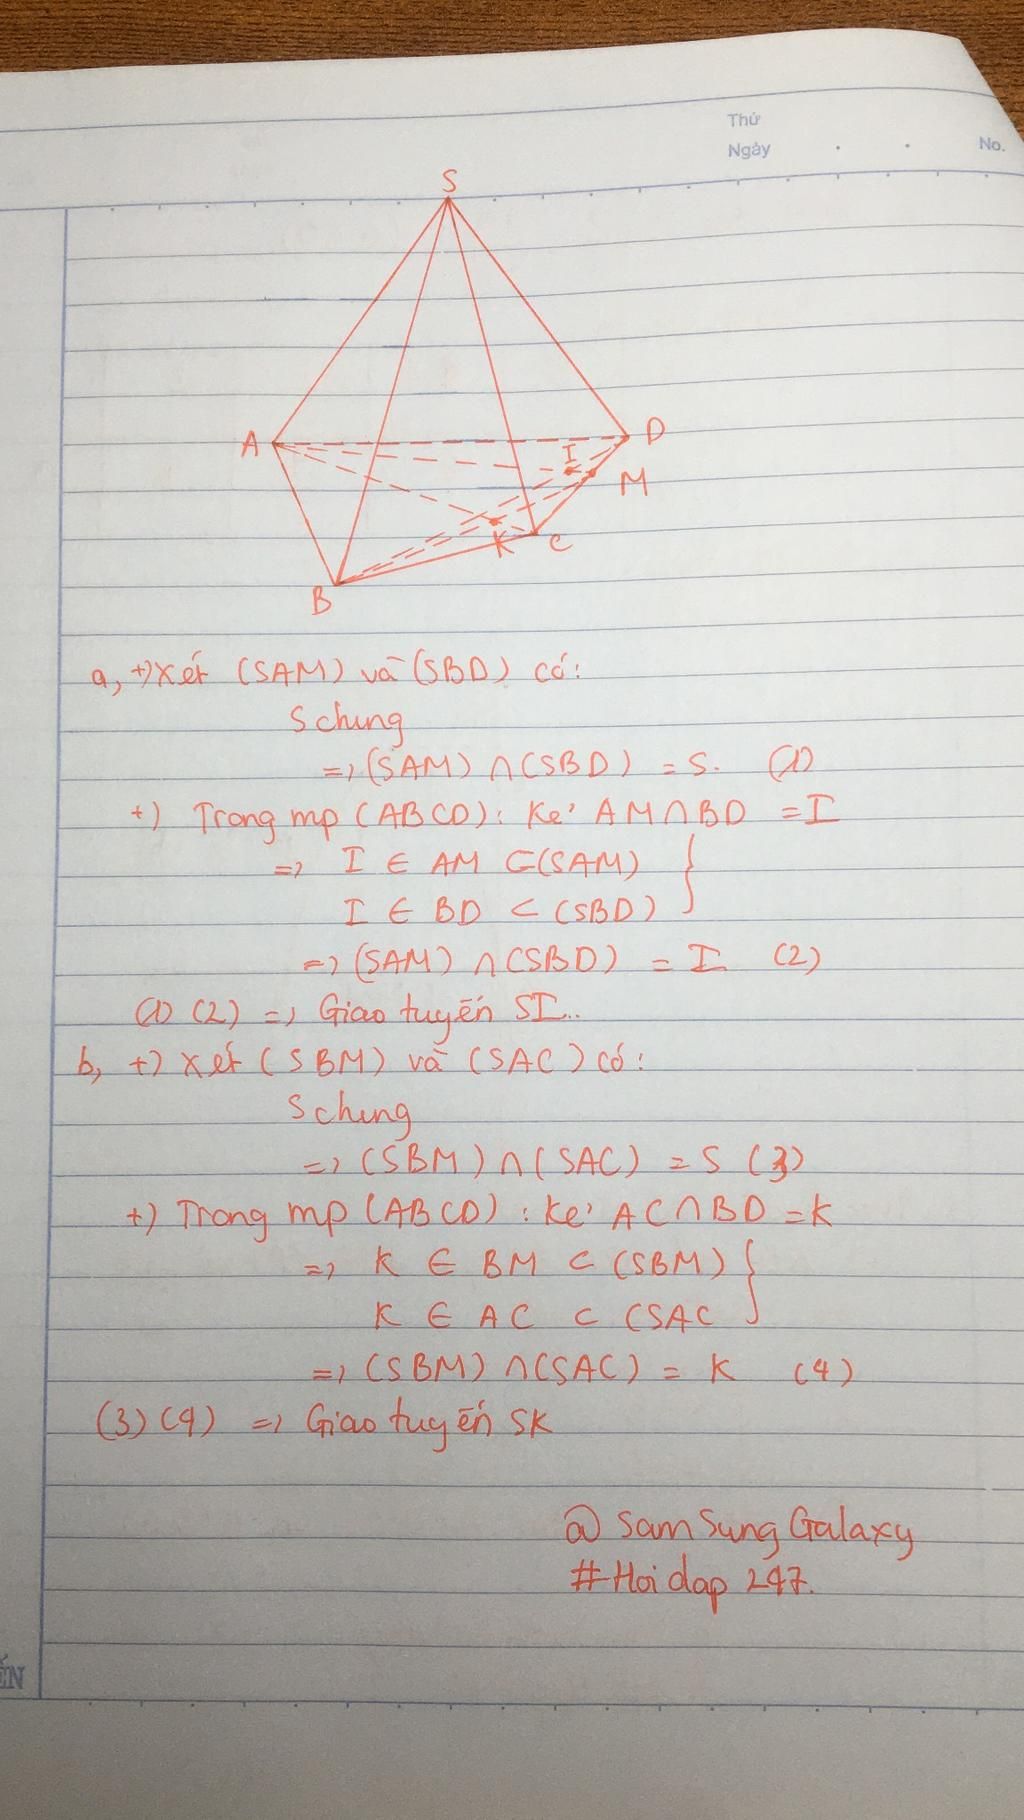 Thứ
Ngày
No.
S
A
D
I
M
K
C
B
a, +) Xét (SAM) và (SBD) có:
S chung
=> (SAM) ∩ (SBD) = S. (1)
+) Trong mp (ABCD): Kẻ AM ∩ BD = I
=> I ∈ AM ⊂ (SAM) }
I ∈ BD ⊂ (SBD)
=> (SAM) ∩ (SBD) = I (2)
(1) (2) => Giao tuyến SI..
b, +) Xét (SBM) và (SAC) có:
S chung
=> (SBM) ∩ (SAC) = S (3)
+) Trong mp (ABCD) : Kẻ AC ∩ BD = K
=> K ∈ BM ⊂ (SBM) }
K ∈ AC ⊂ (SAC
=> (SBM) ∩ (SAC) = K (4)
(3) (4) => Giao tuyến SK
@ SamSung Galaxy
#Hoi dap 247.